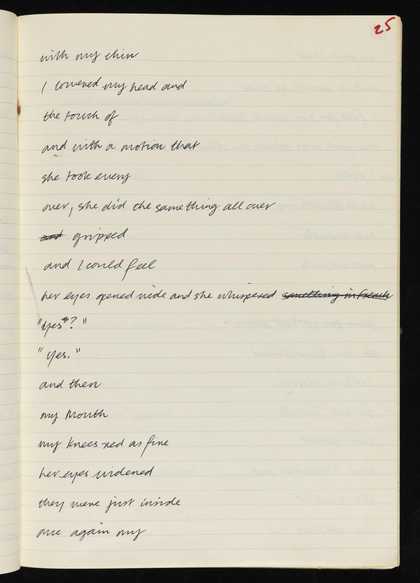 25
with my chin
I lowered my head and
the touch of
and with a motion that
she took every
over, she did the same thing all over
and gripped
and I could feel
her eyes opened wide and she whispered something in French
"Yes?"
"Yes."
and then
my mouth
my knees red as fire
her eyes widened
they were just inside
once again my